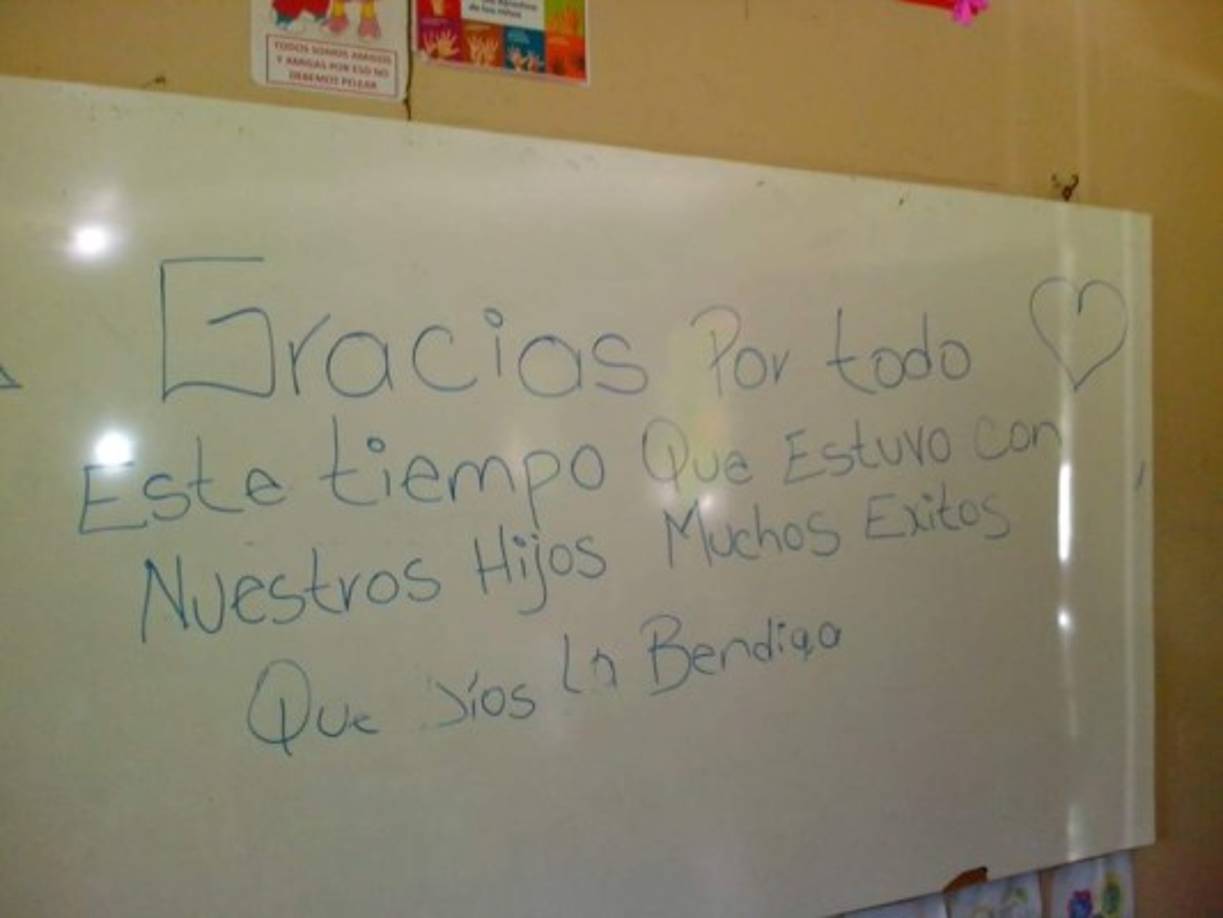 TODOS SOMOS AMIGOS
Y AMIGAS POR ESO NO
DEBEMOS PELEAR
de los niños
Gracias Por todo
Este tiempo Que Estuvo con
Nuestros Hijos Muchos Exitos
Que Dios La Bendiga